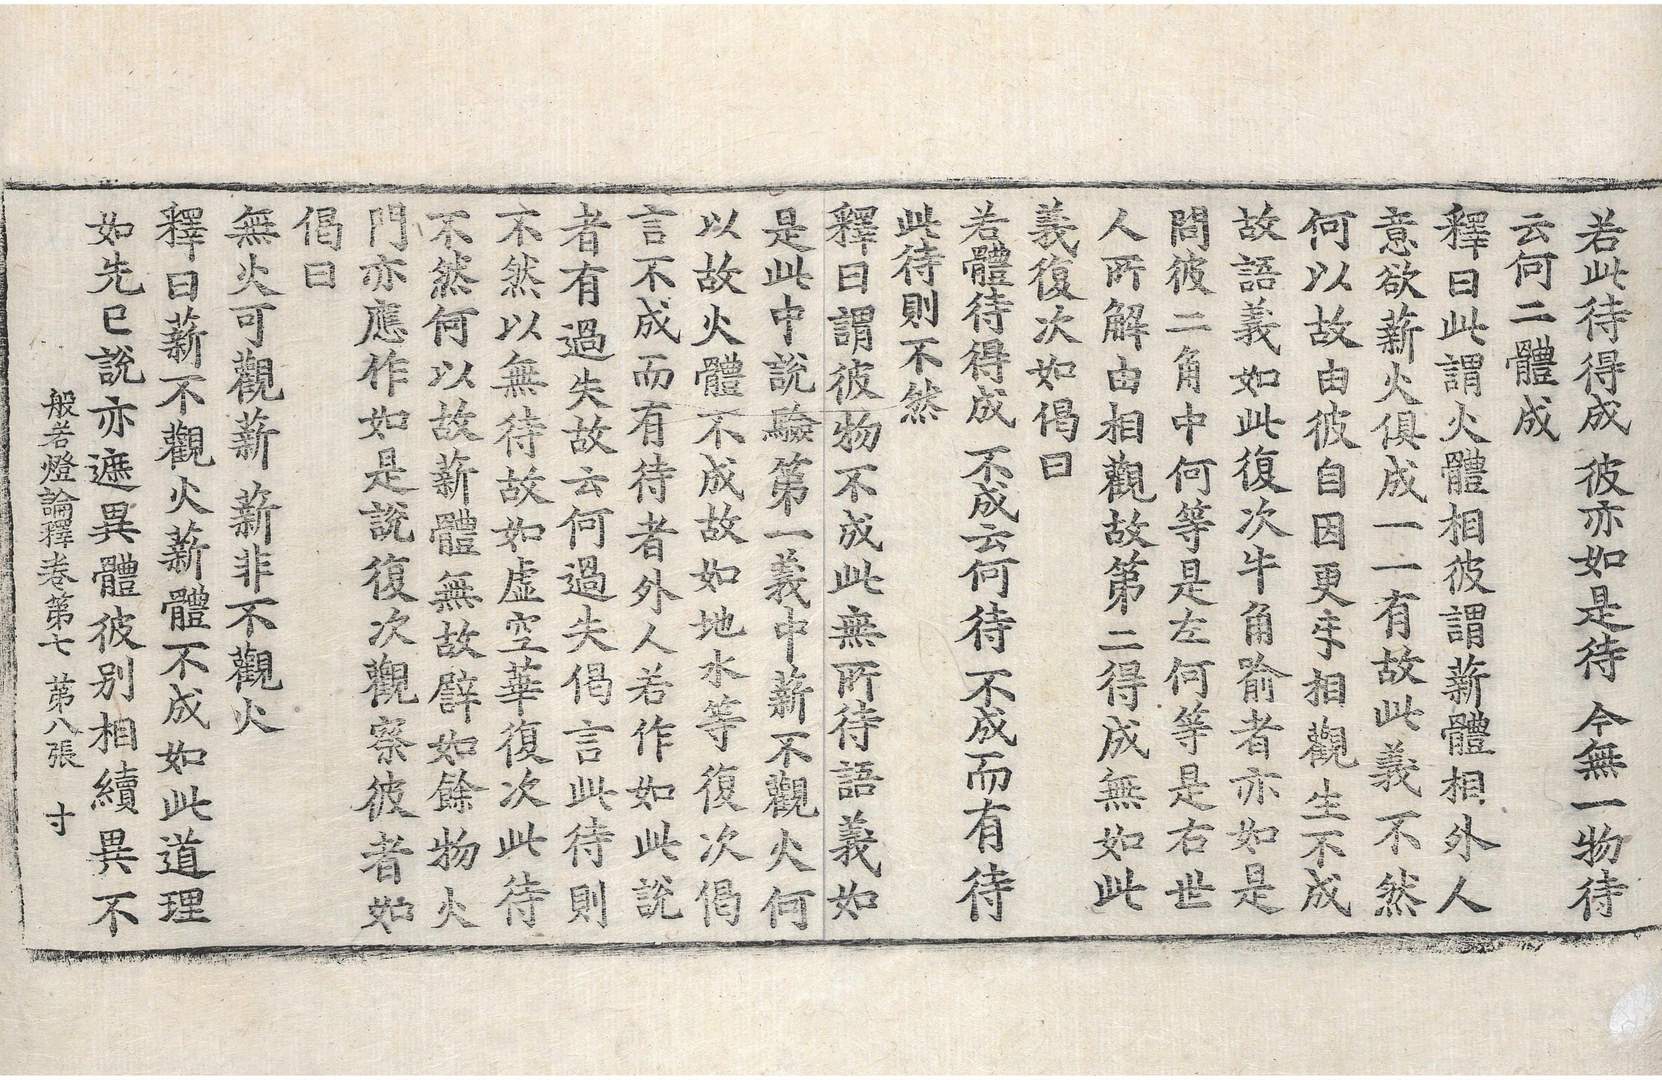 若此待得成 彼亦如是待 今無一物待
云何二體成
釋曰此謂火體相彼謂薪體相外人
意欲薪火俱成一一有故此義不然
何以故由彼自因更互相觀生不成
故語義如此復次牛角喻者亦如是
問彼二角中何等是左何等是右世
人所解由相觀故第二得成無如此
義復次如偈曰
若體待得成 不成云何待 不成而有待
此待則不然
釋曰謂彼物不成此無所待語義如
是此中說驗第一義中薪不觀火何
以故火體不成故如地水等復次偈
言不成而有待者外人若作如此說
者有過失故云何過失偈言此待則
不然以無待故如虛空華復次此待
不然何以故薪體無故譬如餘物火
門亦應作如是說復次觀察彼者如
偈曰
無火可觀薪 薪非不觀火
釋曰薪不觀火薪體不成如此道理
如先已說亦遮異體彼別相續異不
般若燈論釋卷第七 第八張 寸